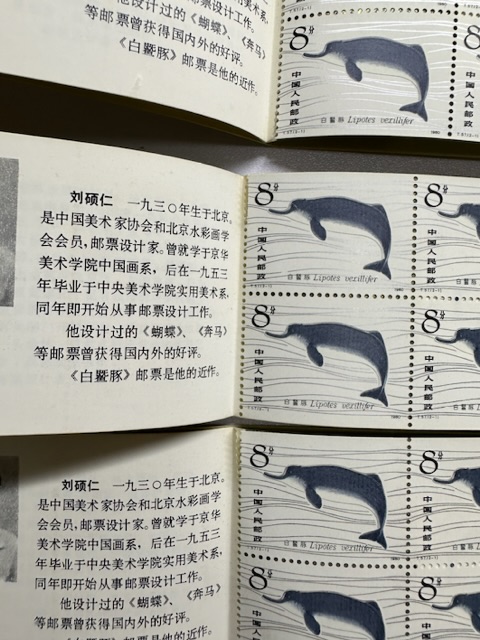 他设计过的《蝴蝶》、《奔马》
等邮票曾获得国内外的好评。
《白鱀豚》邮票是他的近作。
8分
中国人民邮政
白鱀豚 Lipotes vexillifer
1980
刘硕仁 一九三〇年生于北京。
是中国美术家协会和北京水彩画学
会会员,邮票设计家。曾就学于京华
美术学院中国画系，后在一九五三
年毕业于中央美术学院实用美术系,
同年即开始从事邮票设计工作。
他设计过的《蝴蝶》、《奔马》
等邮票曾获得国内外的好评。
《白鱀豚》邮票是他的近作。
8分
中国人民邮政
白鱀豚 Lipotes vexillifer
8分
中国人民邮政
8分
中国人民邮政
白鱀豚 Lipotes vexillifer
8分
中国人民邮政
刘硕仁 一九三〇年生于北京。
是中国美术家协会和北京水彩画学
会会员,邮票设计家。曾就学于京华
美术学院中国画系，后在一九五三
年毕业于中央美术学院实用美术系,
同年即开始从事邮票设计工作。
他设计过的《蝴蝶》、《奔马》
等邮票曾获得国内外的好评。
8分
中国人民邮政
白鱀豚 Lipotes vexillifer
8分
中国人民邮政
8分
8分